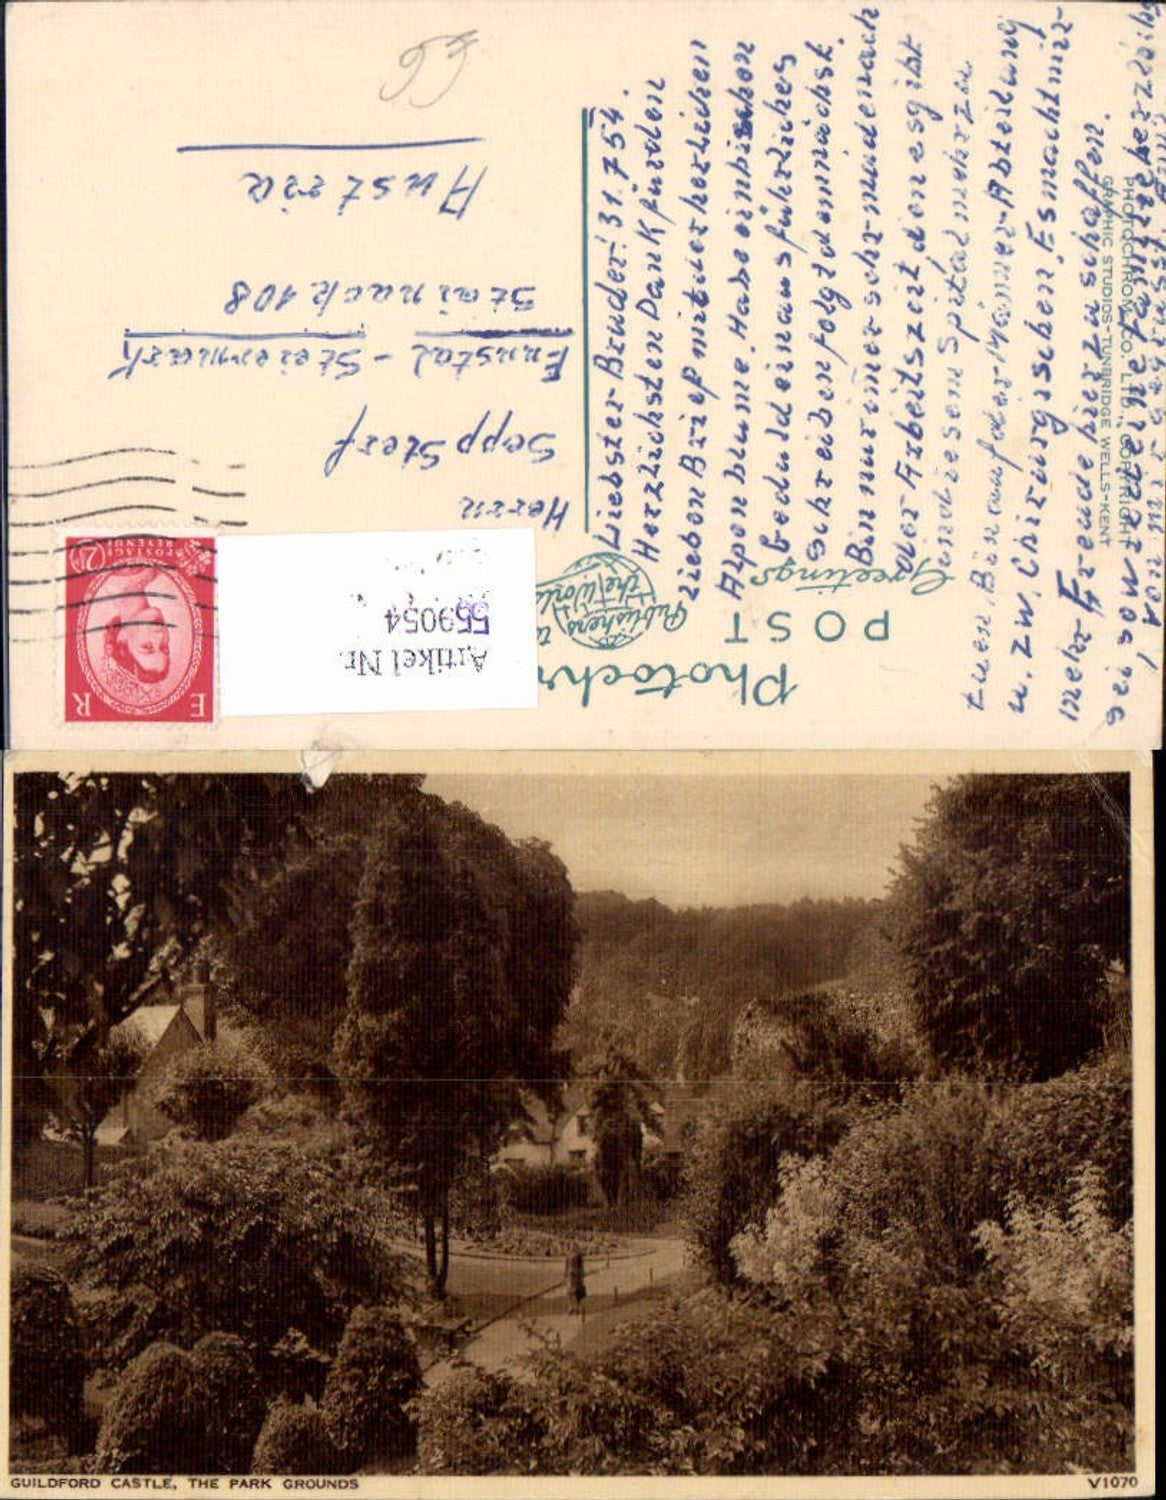 Photochr
POST
Greetings
Publishers to
the World
Artikel Nr.
559054
E R
POSTAGE
REVENUE
2½
Herrn
Sepp Sterf
Ennstal - Steiermark
Stainach 108
Austria
Liebster Bruder! 31.7 54.
Herzlichsten Dank für den
lieben Brief mit der herrlichen
Alpenblume. Habe ein bisschen
Geduld ein ausführliches
Schreiben folgt demnächst.
Bin nur immer sehr müde nach
der Arbeitszeit den es gibt
in diesem Spital mehr zu
tuen. Bin auf der Männer-Abteilung
u. zw. Chirurgischen. Es macht mir
mehr Freude hier zu schaffen.
Sei so wie Deine Familie herzlichst
von
PHOTOCHROM CO., LTD., COPYRIGHT
GRAPHIC STUDIOS-TUNBRIDGE WELLS-KENT
GUILDFORD CASTLE, THE PARK GROUNDS
V1070